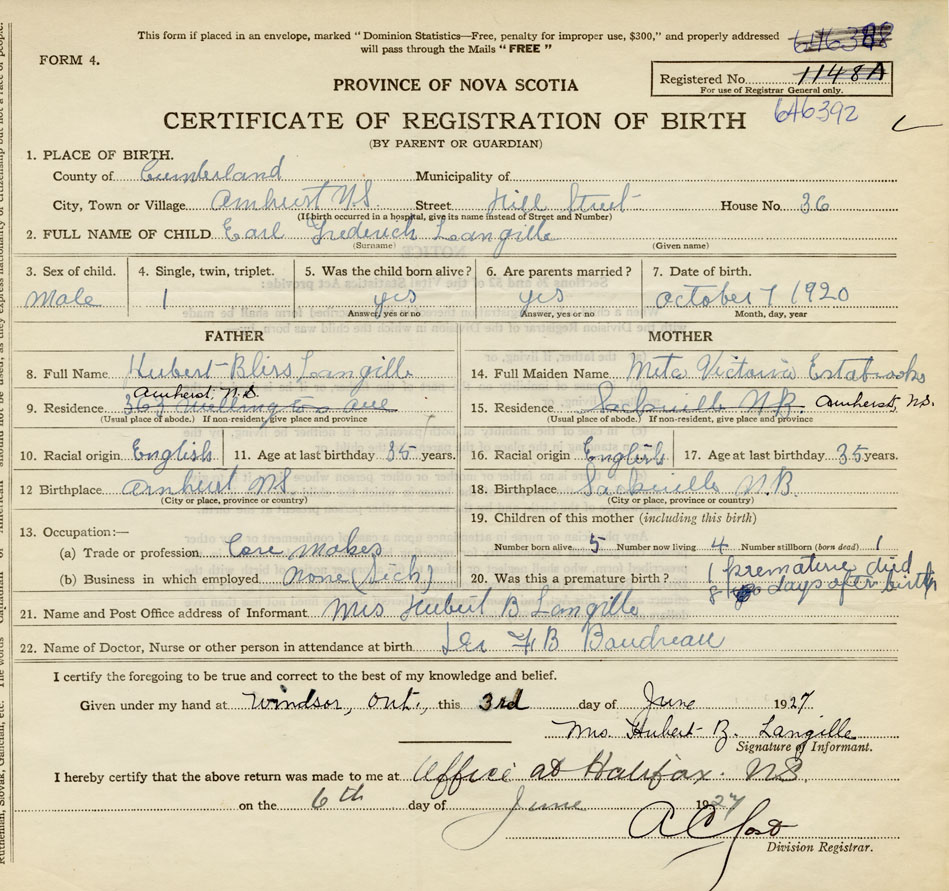 This form if placed in an envelope, marked "Dominion Statistics—Free, penalty for improper use, $300," and properly addressed
will pass through the Mails "FREE"
FORM 4.
PROVINCE OF NOVA SCOTIA
Registered No. 1148A
For use of Registrar General only.
646392
CERTIFICATE OF REGISTRATION OF BIRTH
(BY PARENT OR GUARDIAN)
1. PLACE OF BIRTH.
County of Cumberland Municipality of
City, Town or Village Amhurst N.S. Street Hill Street House No. 36
(If birth occurred in a hospital, give its name instead of Street and Number)
2. FULL NAME OF CHILD Earl Frederich Langille
(Surname) (Given name)
3. Sex of child. 4. Single, twin, triplet. 5. Was the child born alive? 6. Are parents married? 7. Date of birth.
Male 1 yes yes October 7 1920
Answer, yes or no Answer, yes or no Month, day, year
FATHER MOTHER
8. Full Name Hubert Bliss Langille 14. Full Maiden Name Meta Victoria Estabrooks
Amherst, N.S.
9. Residence 367 ave 15. Residence Sackville N.B. Amherst, N.S.
(Usual place of abode.) If non-resident, give place and province (Usual place of abode.) If non-resident, give place and province
10. Racial origin English 11. Age at last birthday 35 years. 16. Racial origin English 17. Age at last birthday 35 years.
12 Birthplace Amhurst N.S. 18. Birthplace Sackville N.B.
(City or place, province or country) (City or place, province or country)
19. Children of this mother (including this birth)
13. Occupation:—
(a) Trade or profession Core Maker Number born alive 5 Number now living 4 Number stillborn (born dead) 1
(b) Business in which employed None (Sick) 20. Was this a premature birth? 1 premature died
8 days after birth
21. Name and Post Office address of Informant Mrs Hubert B Langille
22. Name of Doctor, Nurse or other person in attendance at birth B Baudreau
I certify the foregoing to be true and correct to the best of my knowledge and belief.
Given under my hand at Windsor, Ont., this 3rd day of June 1927
Mrs. Hubert B. Langille
Signature of Informant.
I hereby certify that the above return was made to me at Office at Halifax. N.S.
on the 6th day of June 1927
Division Registrar.